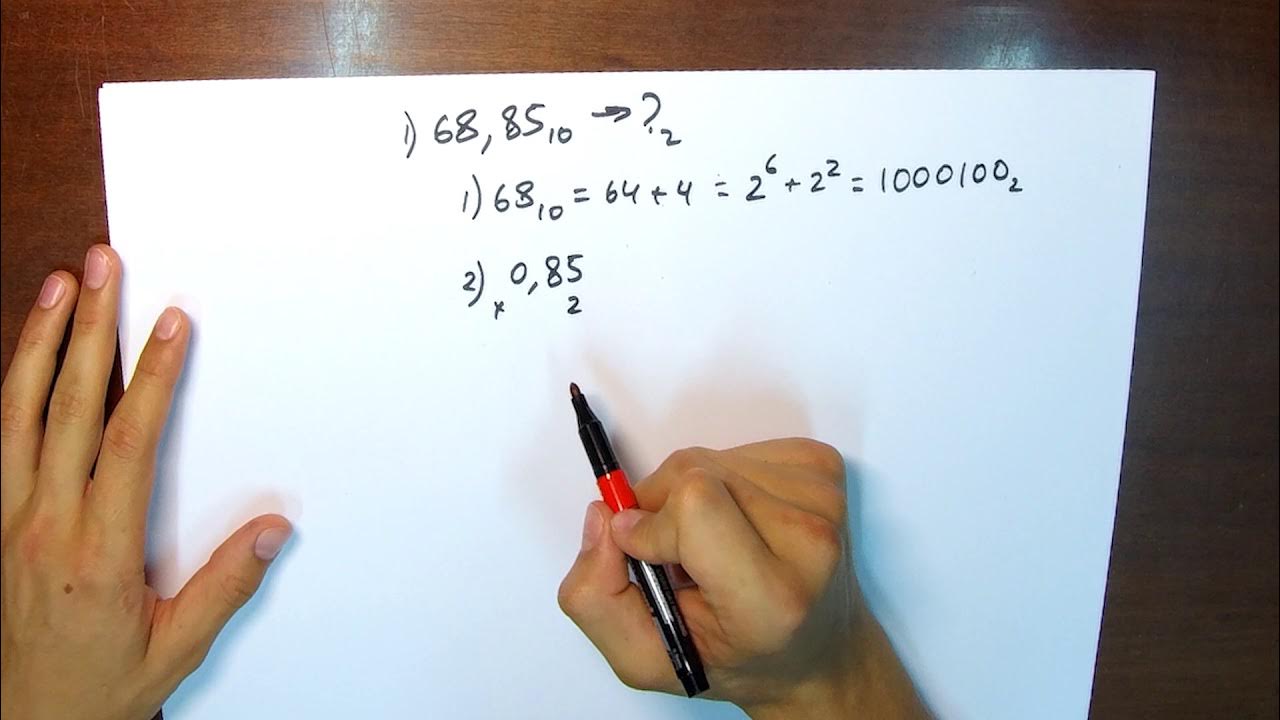 1) 68,85₁₀ → ?₂
1) 68₁₀ = 64 + 4 = 2⁶ + 2² = 1000100₂
2) 0,85
× 2